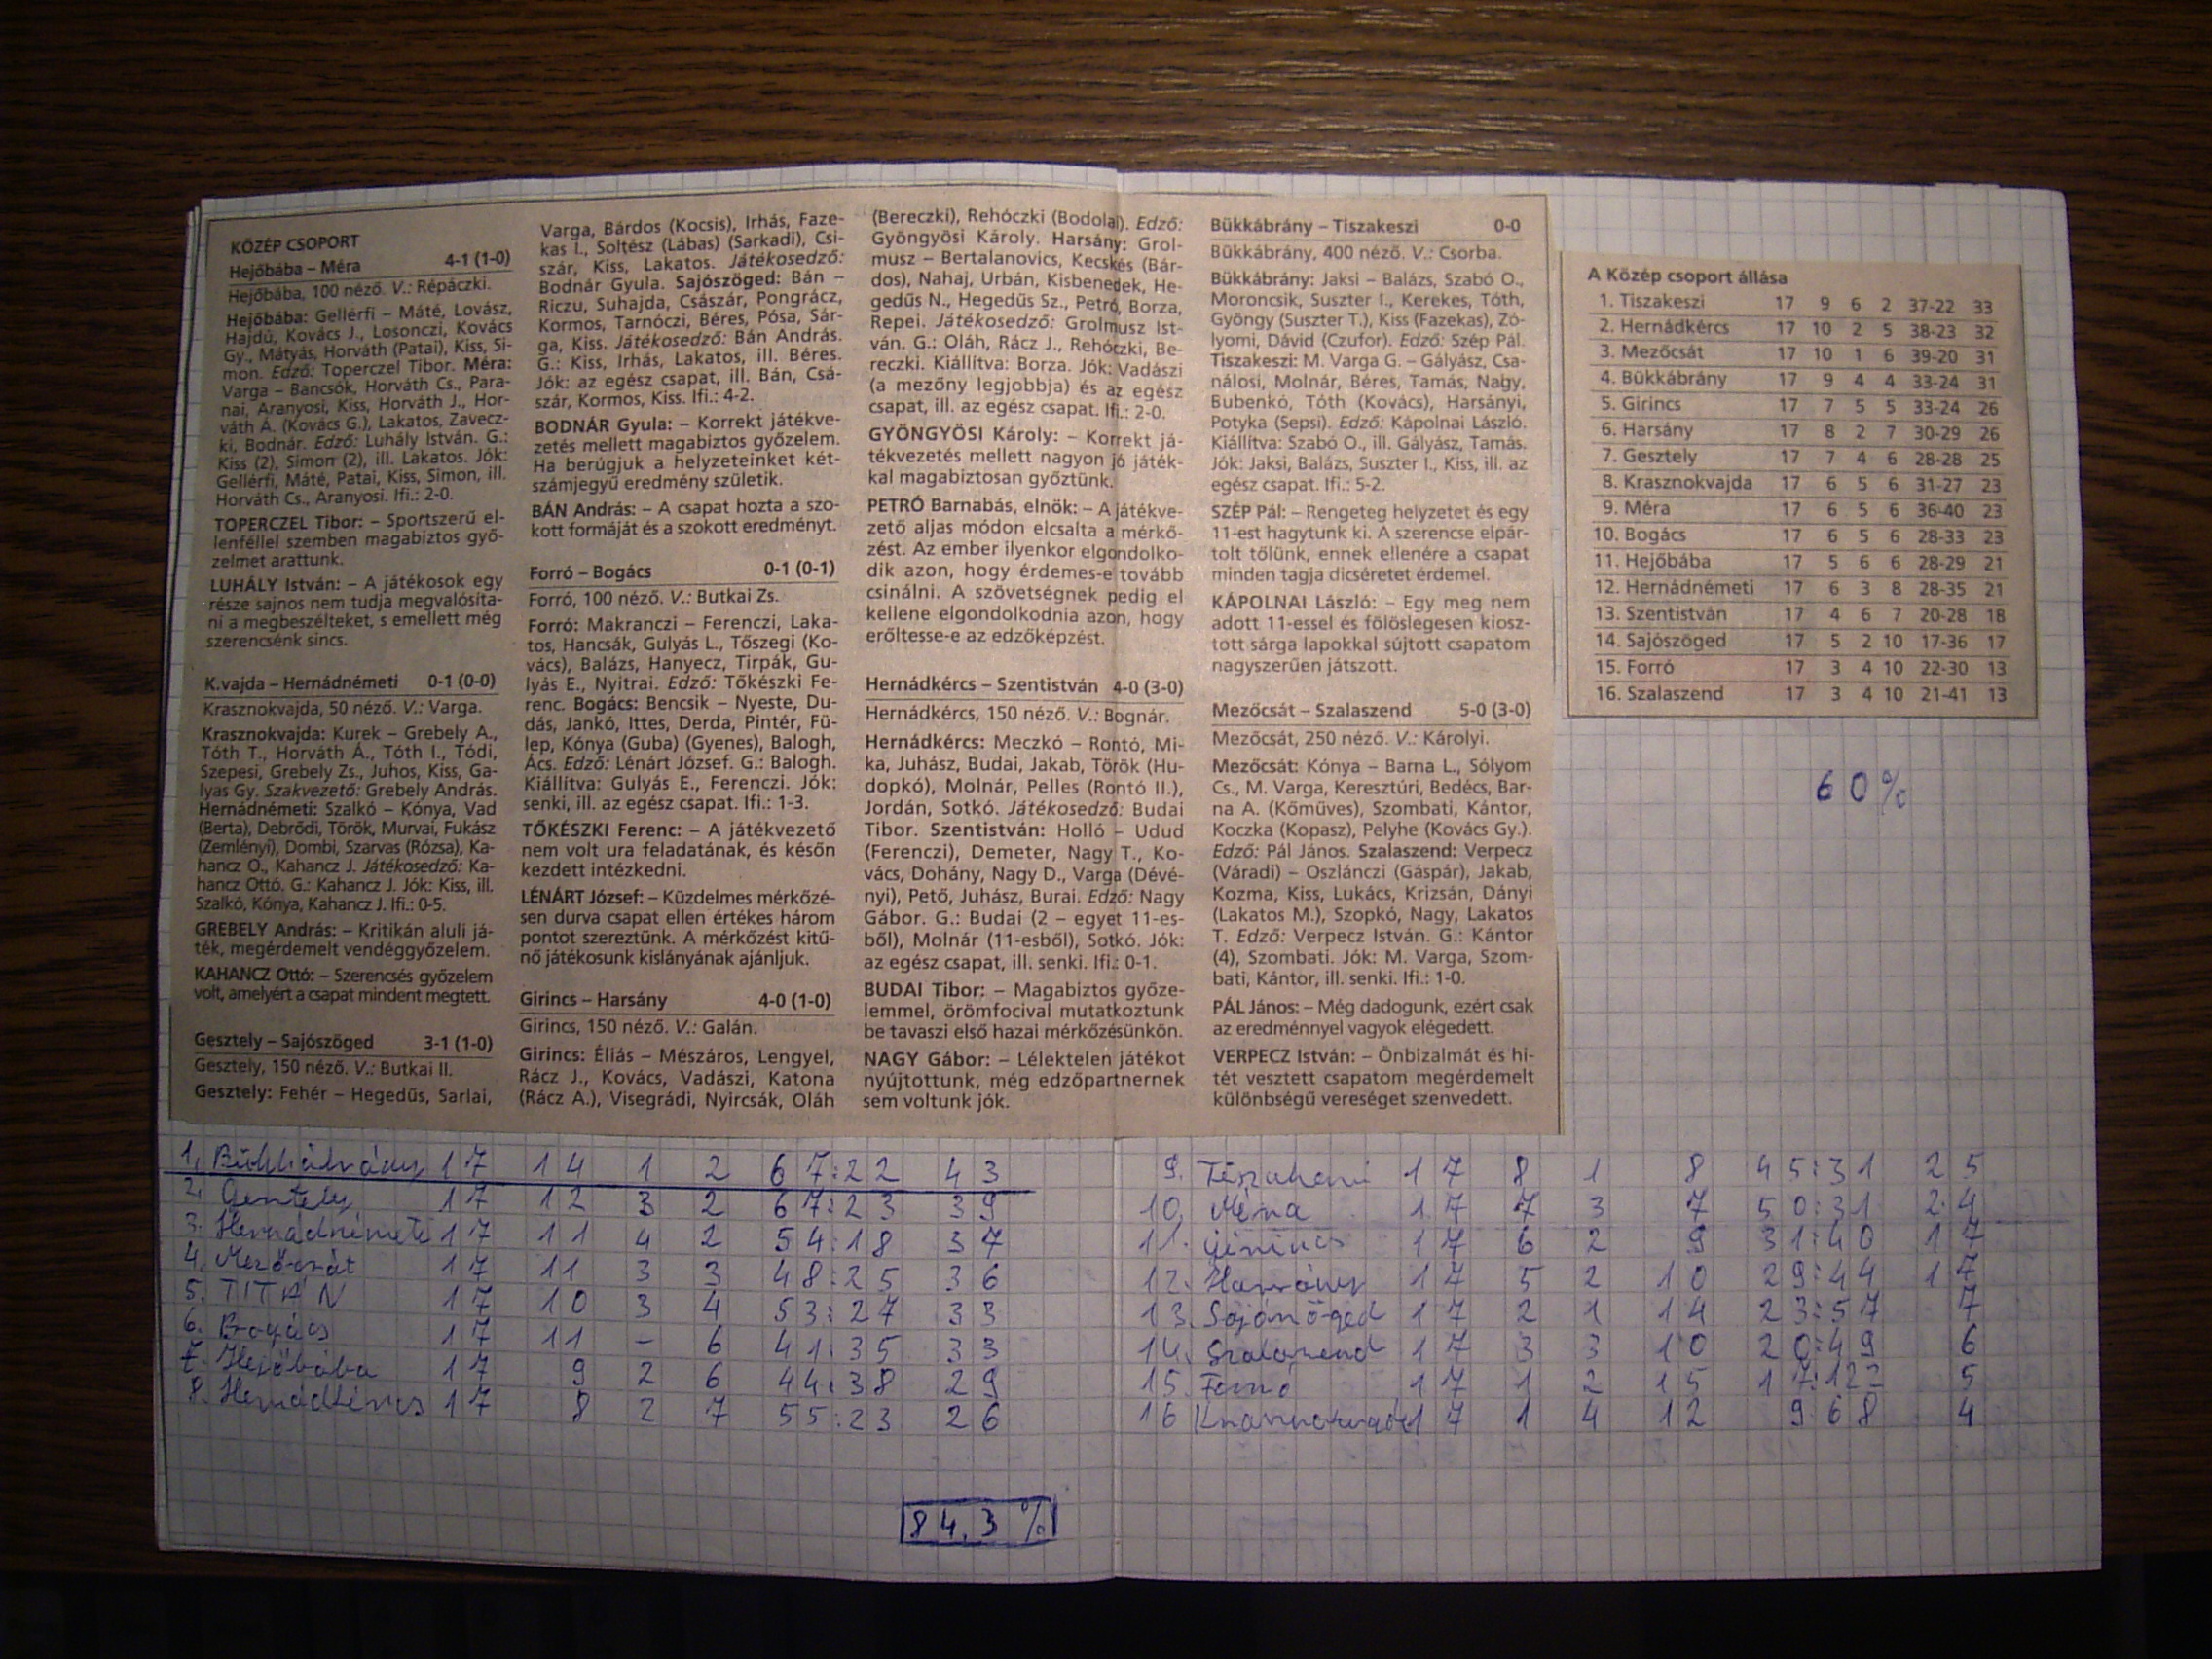 KÖZÉP CSOPORT
Hejőbába – Méra 4-1 (1-0)
Hejőbába, 100 néző. V.: Répáczki.
Hejőbába: Gellérfi – Máté, Lovász,
Hajdú, Kovács J., Losonczi, Kovács
Gy., Mátyás, Horváth (Patai), Kiss, Si-
mon. Edző: Toperczel Tibor. Méra:
Varga – Bancsók, Horváth Cs., Para-
nai, Aranyosi, Kiss, Horváth J., Hor-
váth A. (Kovács G.), Lakatos, Zavecz-
ki, Bodnár. Edző: Luhály István. G.:
Kiss (2), Simon (2), ill. Lakatos. Jók:
Gellérfi, Máté, Patai, Kiss, Simon, ill.
Horváth Cs., Aranyosi. Ifi.: 2-0.
TOPERCZEL Tibor: – Sportszerű el-
lenféllel szemben magabiztos győ-
zelmet arattunk.
LUHÁLY István: – A játékosok egy
része sajnos nem tudja megvalósíta-
ni a megbeszélteket, s emellett még
szerencsénk sincs.
K.vajda – Hernádnémeti 0-1 (0-0)
Krasznokvajda, 50 néző. V.: Varga.
Krasznokvajda: Kurek – Grebely A.,
Tóth T., Horváth Á., Tóth I., Tódi,
Szepesi, Grebely Zs., Juhos, Kiss, Ga-
lyas Gy. Szakvezető: Grebely András.
Hernádnémeti: Szalkó – Kónya, Vad
(Berta), Debrődi, Török, Murvai, Fukász
(Zemlényi), Dombi, Szarvas (Rózsa), Ka-
hancz O., Kahancz J. Játékosedző: Ka-
hancz Ottó. G.: Kahancz J. Jók: Kiss, ill.
Szalkó, Kónya, Kahancz J. Ifi.: 0-5.
GREBELY András: – Kritikán aluli já-
ték, megérdemelt vendéggyőzelem.
KAHANCZ Ottó: – Szerencsés győzelem
volt, amelyért a csapat mindent megtett.
Gesztely – Sajószöged 3-1 (1-0)
Gesztely, 150 néző. V.: Butkai II.
Gesztely: Fehér – Hegedűs, Sarlai,
Varga, Bárdos (Kocsis), Irhás, Faze-
kas I., Soltész (Lábas) (Sarkadi), Csi-
szár, Kiss, Lakatos. Játékosedző:
Bodnár Gyula. Sajószöged: Bán –
Riczu, Suhajda, Császár, Pongrácz,
Kormos, Tarnóczi, Béres, Pósa, Sár-
ga, Kiss. Játékosedző: Bán András.
G.: Kiss, Irhás, Lakatos, ill. Béres.
Jók: az egész csapat, ill. Bán, Csá-
szár, Kormos, Kiss. Ifi.: 4-2.
BODNÁR Gyula: – Korrekt játékve-
zetés mellett magabiztos győzelem.
Ha berúgjuk a helyzeteinket két-
számjegyű eredmény születik.
BÁN András: – A csapat hozta a szo-
kott formáját és a szokott eredményt.
Forró – Bogács 0-1 (0-1)
Forró, 100 néző. V.: Butkai Zs.
Forró: Makranczi – Ferenczi, Laka-
tos, Hancsák, Gulyás L., Tőszegi (Ko-
vács), Balázs, Hanyecz, Tirpák, Gu-
lyás E., Nyitrai. Edző: Tőkészki Fe-
renc. Bogács: Bencsik – Nyeste, Du-
dás, Jankó, Ittes, Derda, Pintér, Fü-
lep, Kónya (Guba) (Gyenes), Balogh,
Ács. Edző: Lénárt József. G.: Balogh.
Kiállítva: Gulyás E., Ferenczi. Jók:
senki, ill. az egész csapat. Ifi.: 1-3.
TŐKÉSZKI Ferenc: – A játékvezető
nem volt ura feladatának, és későn
kezdett intézkedni.
LÉNÁRT József: – Küzdelmes mérkőzé-
sen durva csapat ellen értékes három
pontot szereztünk. A mérkőzést kitű-
nő játékosunk kislányának ajánljuk.
Girincs – Harsány 4-0 (1-0)
Girincs, 150 néző. V.: Galán.
Girincs: Éliás – Mészáros, Lengyel,
Rácz J., Kovács, Vadászi, Katona
(Rácz A.), Visegrádi, Nyircsák, Oláh
(Bereczki), Rehóczki (Bodolai). Edző:
Gyöngyösi Károly. Harsány: Grol-
musz – Bertalanovics, Kecskés (Bár-
dos), Nahaj, Urbán, Kisbenedek, He-
gedűs N., Hegedűs Sz., Petró, Borza,
Repei. Játékosedző: Grolmusz Ist-
ván. G.: Oláh, Rácz J., Rehóczki, Be-
reczki. Kiállítva: Borza. Jók: Vadászi
(a mezőny legjobbja) és az egész
csapat, ill. az egész csapat. Ifi.: 2-0.
GYÖNGYÖSI Károly: – Korrekt já-
tékvezetés mellett nagyon jó játék-
kal magabiztosan győztünk.
PETRÓ Barnabás, elnök: – A játékve-
zető aljas módon elcsalta a mérkő-
zést. Az ember ilyenkor elgondolko-
dik azon, hogy érdemes-e tovább
csinálni. A szövetségnek pedig el
kellene elgondolkodnia azon, hogy
erőltesse-e az edzőképzést.
Hernádkércs – Szentistván 4-0 (3-0)
Hernádkércs, 150 néző. V.: Bognár.
Hernádkércs: Meczkó – Rontó, Mi-
ka, Juhász, Budai, Jakab, Török (Hu-
dopkó), Molnár, Pelles (Rontó II.),
Jordán, Sotkó. Játékosedző: Budai
Tibor. Szentistván: Holló – Udud
(Ferenczi), Demeter, Nagy T., Ko-
vács, Dohány, Nagy D., Varga (Dévé-
nyi), Pető, Juhász, Burai. Edző: Nagy
Gábor. G.: Budai (2 – egyet 11-es-
ből), Molnár (11-esből), Sotkó. Jók:
az egész csapat, ill. senki. Ifi.: 0-1.
BUDAI Tibor: – Magabiztos győze-
lemmel, örömfocival mutatkoztunk
be tavaszi első hazai mérkőzésünkön.
NAGY Gábor: – Lélektelen játékot
nyújtottunk, még edzőpartnernek
sem voltunk jók.
Bükkábrány – Tiszakeszi 0-0
Bükkábrány, 400 néző. V.: Csorba.
Bükkábrány: Jaksi – Balázs, Szabó O.,
Moroncsik, Suszter I., Kerekes, Tóth,
Gyöngy (Suszter T.), Kiss (Fazekas), Zó-
lyomi, Dávid (Czufor). Edző: Szép Pál.
Tiszakeszi: M. Varga G. – Gályász, Csa-
nálosi, Molnár, Béres, Tamás, Nagy,
Bubenkó, Tóth (Kovács), Harsányi,
Potyka (Sepsi). Edző: Kápolnai László.
Kiállítva: Szabó O., ill. Gályász, Tamás.
Jók: Jaksi, Balázs, Suszter I., Kiss, ill. az
egész csapat. Ifi.: 5-2.
SZÉP Pál: – Rengeteg helyzetet és egy
11-est hagytunk ki. A szerencse elpár-
tolt tőlünk, ennek ellenére a csapat
minden tagja dicséretet érdemel.
KÁPOLNAI László: – Egy meg nem
adott 11-essel és fölöslegesen kiosz-
tott sárga lapokkal sújtott csapatom
nagyszerűen játszott.
Mezőcsát – Szalaszend 5-0 (3-0)
Mezőcsát, 250 néző. V.: Károlyi.
Mezőcsát: Kónya – Barna L., Sólyom
Cs., M. Varga, Keresztúri, Bedécs, Bar-
na A. (Kőműves), Szombati, Kántor,
Koczka (Kopasz), Pelyhe (Kovács Gy.).
Edző: Pál János. Szalaszend: Verpecz
(Váradi) – Oszlánczi (Gáspár), Jakab,
Kozma, Kiss, Lukács, Krizsán, Dányi
(Lakatos M.), Szopkó, Nagy, Lakatos
T. Edző: Verpecz István. G.: Kántor
(4), Szombati. Jók: M. Varga, Szom-
bati, Kántor, ill. senki. Ifi.: 1-0.
PÁL János: – Még dadogunk, ezért csak
az eredménnyel vagyok elégedett.
VERPECZ István: – Önbizalmát és hi-
tét vesztett csapatom megérdemelt
különbségű vereséget szenvedett.
A Közép csoport állása
1. Tiszakeszi 17 9 6 2 37-22 33
2. Hernádkércs 17 10 2 5 38-23 32
3. Mezőcsát 17 10 1 6 39-20 31
4. Bükkábrány 17 9 4 4 33-24 31
5. Girincs 17 7 5 5 33-24 26
6. Harsány 17 8 2 7 30-29 26
7. Gesztely 17 7 4 6 28-28 25
8. Krasznokvajda 17 6 5 6 31-27 23
9. Méra 17 6 5 6 36-40 23
10. Bogács 17 6 5 6 28-33 23
11. Hejőbába 17 5 6 6 28-29 21
12. Hernádnémeti 17 6 3 8 28-35 21
13. Szentistván 17 4 6 7 20-28 18
14. Sajószöged 17 5 2 10 17-36 17
15. Forró 17 3 4 10 22-30 13
16. Szalaszend 17 3 4 10 21-41 13
60%
1. Bükkábrány 17 14 1 2 67:22 43
2. Gesztely 17 12 3 2 67:23 39
3. Hernádnémeti 17 11 4 2 54:18 37
4. Mezőcsát 17 11 3 3 48:25 36
5. TITÁN 17 10 3 4 53:27 33
6. Bogács 17 11 – 6 41:35 33
7. Hejőbába 17 9 2 6 44:38 29
8. Hernádkércs 17 8 2 7 55:23 26
84,3%
9. Tiszakeszi 17 8 1 8 45:31 25
10. Méra 17 7 3 7 50:31 24
11. Girincs 17 6 2 9 31:40 17
12. Harsány 17 5 2 10 29:44 17
13. Sajószöged 17 2 1 14 23:57 7
14. Szalaszend 17 3 3 10 20:49 6
15. Forró 17 1 2 15 5
16 Krasznokvajda 17 1 4 12 9 68 4